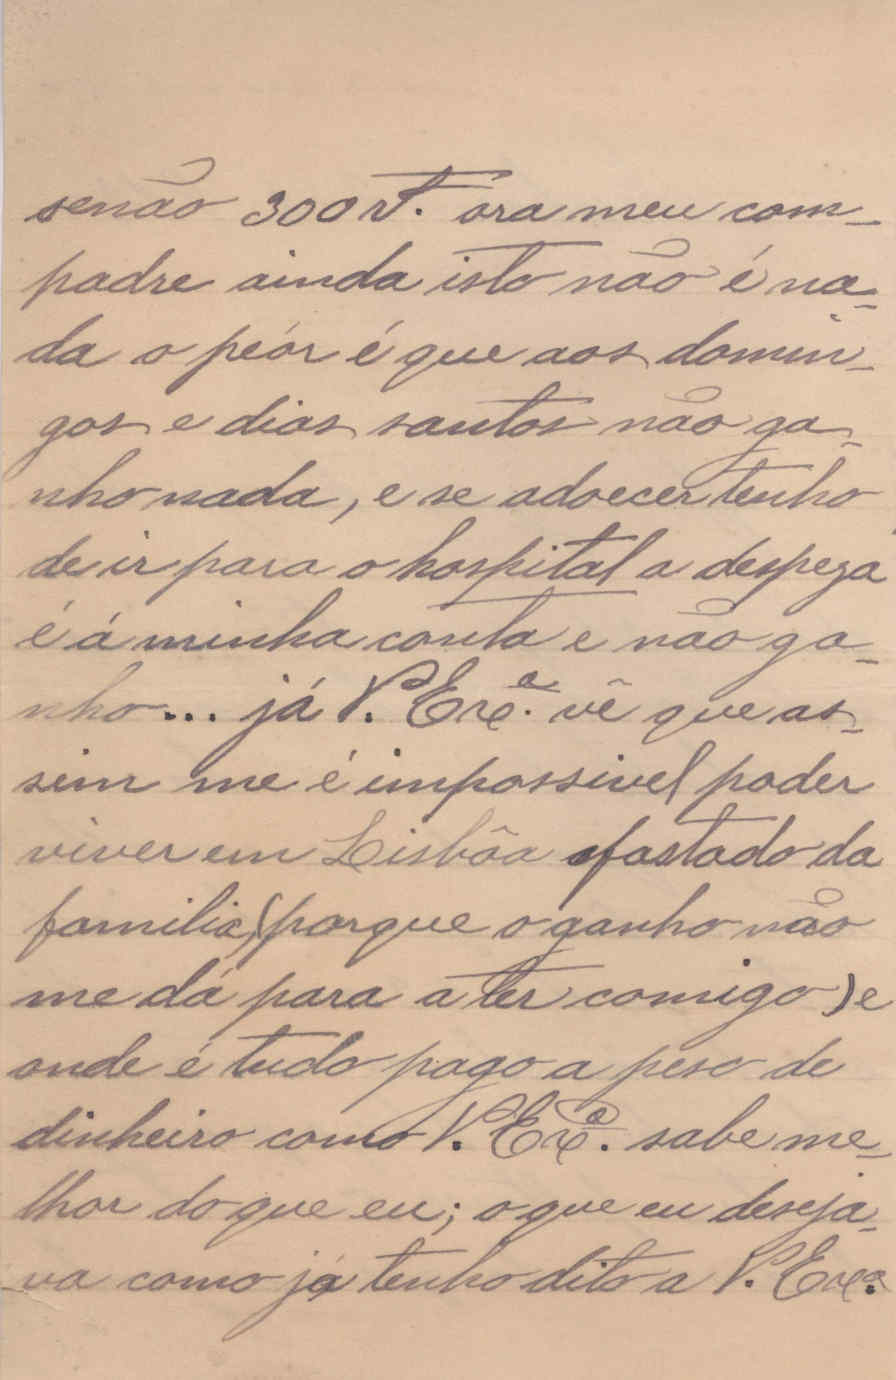 senão 300 rs. ora meu com-
padre ainda isto não é na-
da o peór é que aos domin-
gos e dias santos não ga-
nho nada, e se adoecer tenho
de ir para o hospital a despeza
é á minha conta e não ga-
nho... já V. Exª. vê que as-
sim me é impossivel poder
viver em Lisbôa afastado da
familia, (porque o ganho não
me dá para a ter comigo) e
onde é tudo pago a peso de
dinheiro como V. Exª. sabe me-
lhor do que eu; o que eu deseja-
va como já tenho dito a V. Exª.